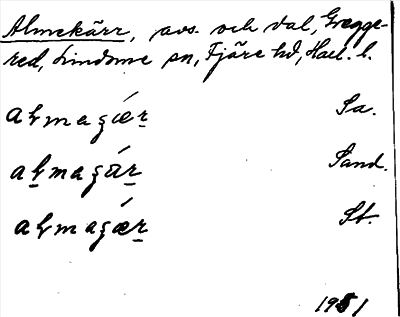 Almekärr, avs. och dal, Gregge-
red, Lindome sn, Fjäre hd, Hall. l.
aLmaʒǽr Sa.
aLmaʒár Sand.
aLmaʒǽr St.
1951